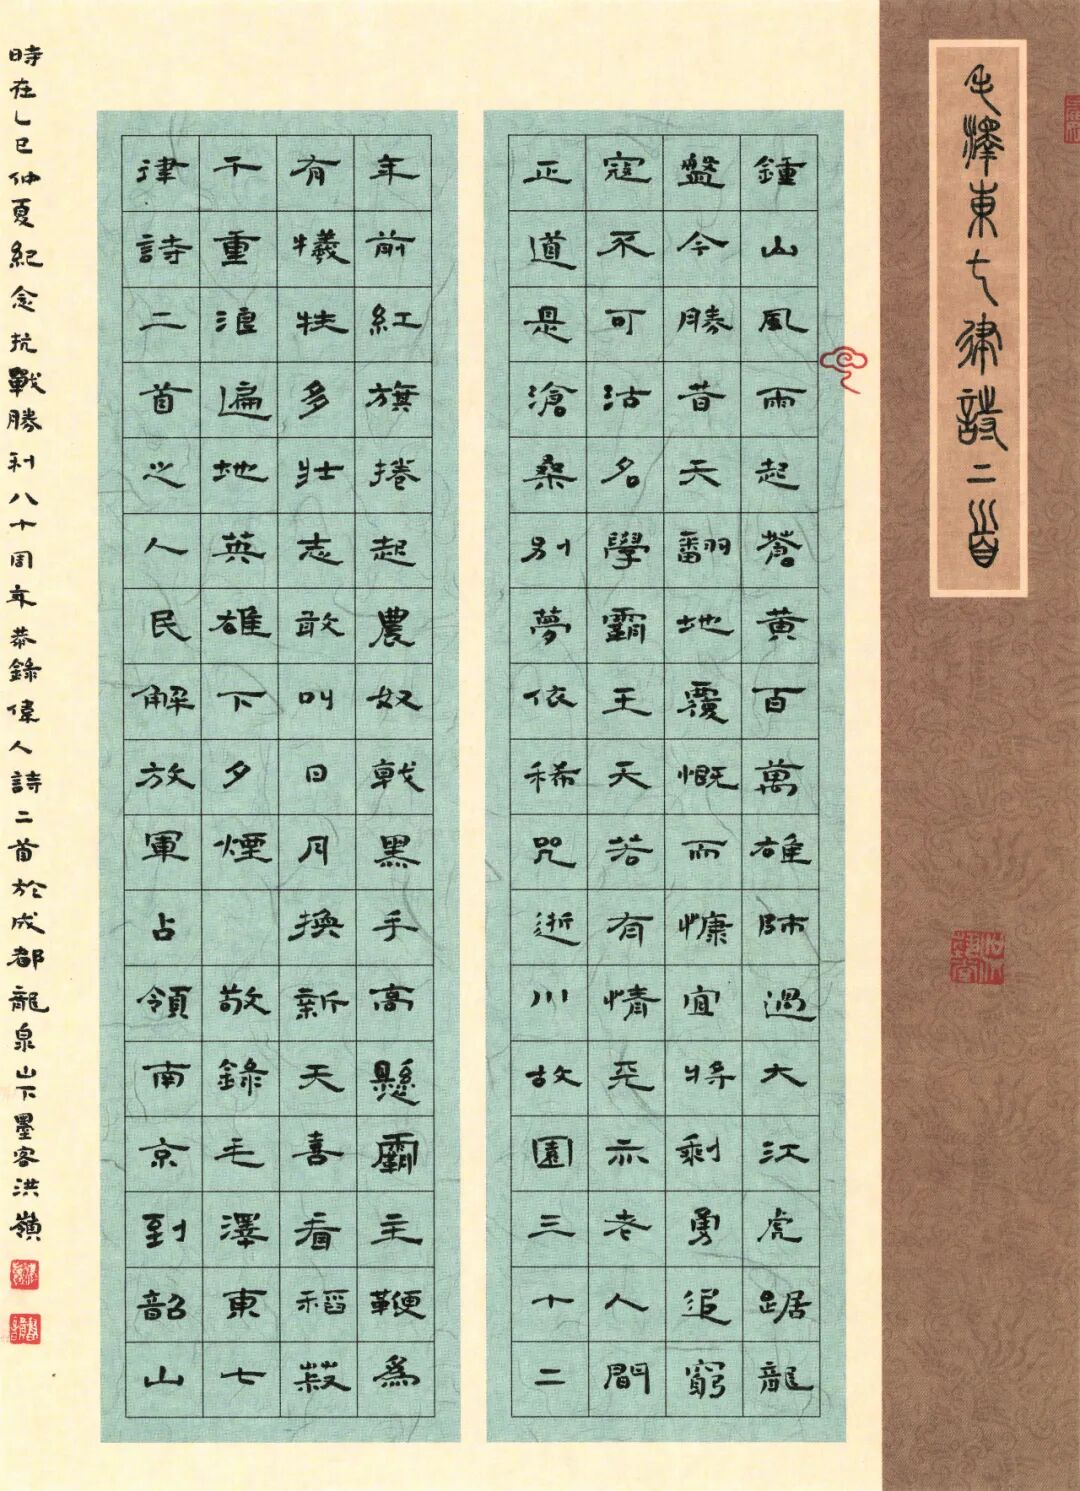 毛澤東七律詩二首
鍾山風雨起蒼黃百萬雄師過大江虎踞龍
盤今勝昔天翻地覆慨而慷宜將剩勇追窮
寇不可沽名學霸王天若有情天亦老人間
正道是滄桑别夢依稀咒逝川故園三十二
年前紅旗捲起農奴戟黑手高懸霸主鞭為
有犧牲多壯志敢叫日月換新天喜看稻菽
千重浪遍地英雄下夕煙 敬錄毛澤東七
律詩二首之人民解放軍占領南京到韶山
時在乙巳仲夏紀念抗戰勝利八十周年恭錄偉人詩二首於成都龍泉山下墨客洪嶺